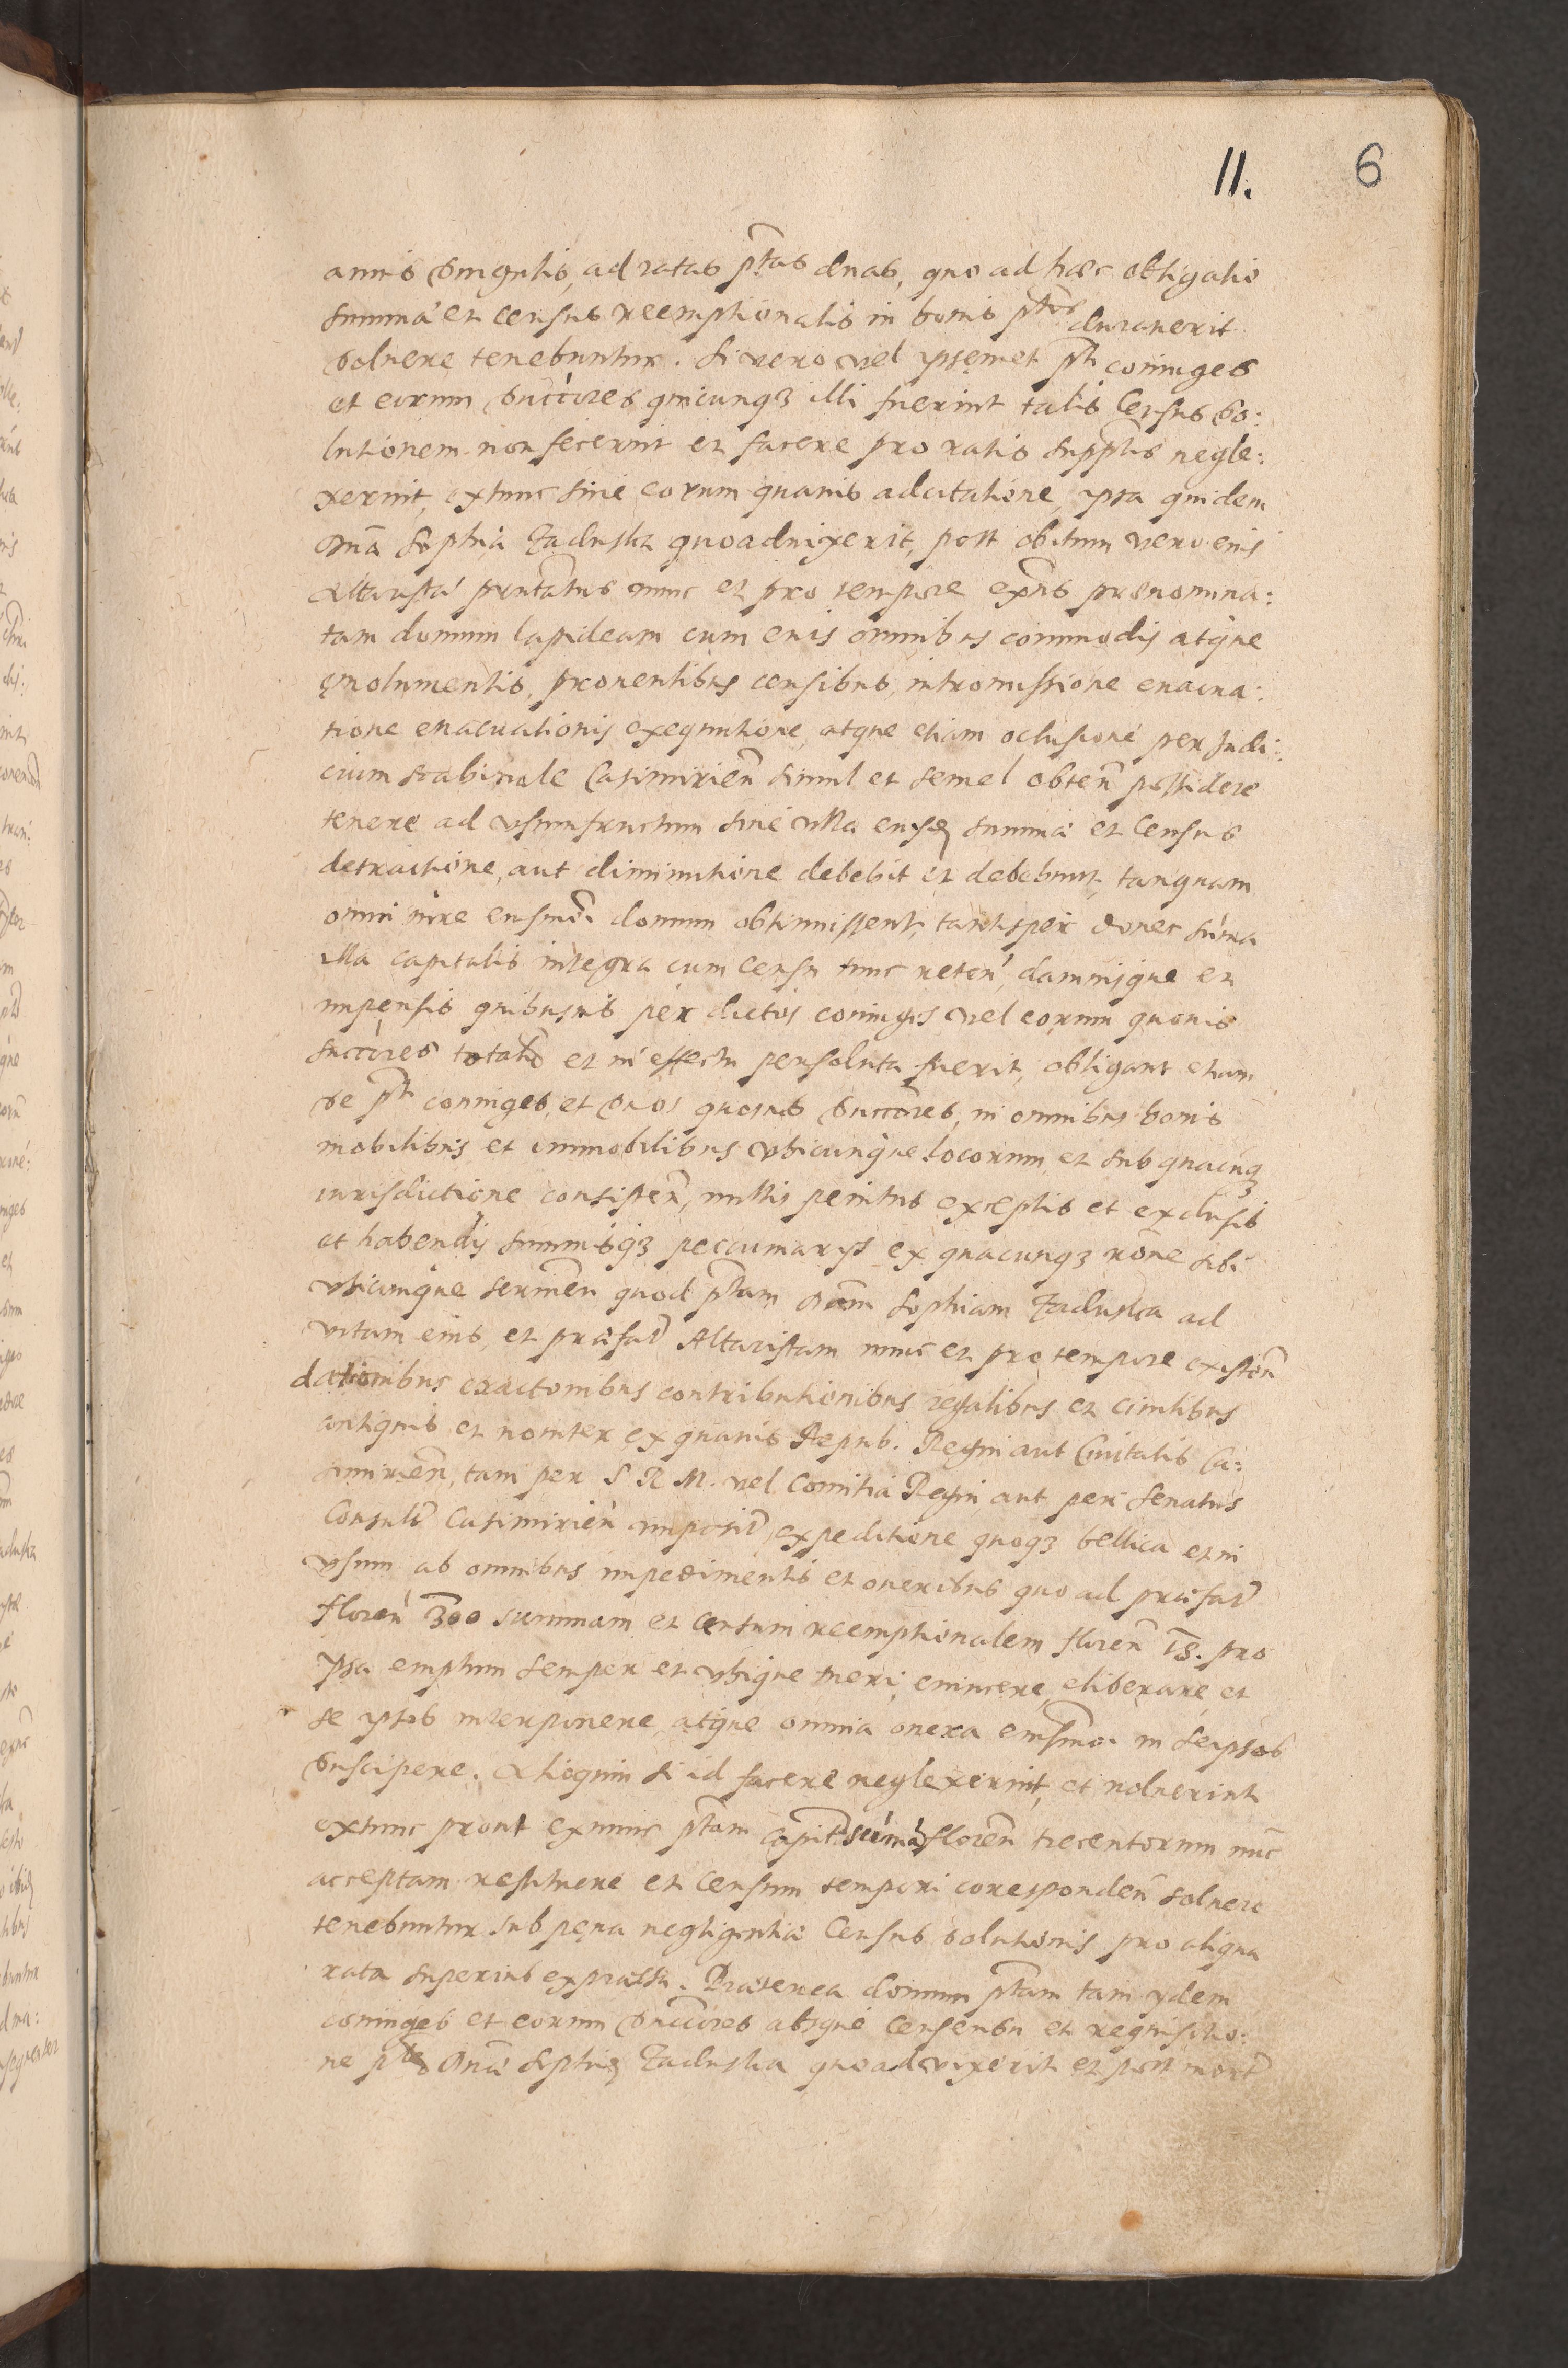 11. 6
annis singulis, ad ratas p̃tas duas, quo ad hæc obligatio
summæ et census reemptionalis in bonis durauerit
soluere tenebuntur. Si vero vel ipsemet p̃ti coniuges
et eorum succores quicunqꝫ illi fuerint talis Census so:
lutionem non fecerint et facere pro ratis suppṫis negle:
xerint, extunc sine eorum quauis adcitatione, ipsa quidem
Sophia Zaduska quoaduixerit, post obitum vero eius
Altarista nunc et pro tempore exñs prænomina:
tam domum lapideam cum eius omnibus commodis atque
emolumentis, prouentibus censibus, intromissione euacua:
tione euacuationis exequutione, atque etiam oclusione per Judi:
cium scabinale Casimirieñ simul et semel obteñ possidere
tenere ad vsumfructum sine vlla eiusdem summæ et Census
detractione, aut diminutione debebit et debebunt, tanquam
omni iure eiusmoi domum obtinuissent, tantisper donec suma
illa capitalis integra cum Censu tunc reteñ, damnisque et
impensis quibusuis per dictos coniuges vel eorum quouis
succores totaliter et in effectu persoluta fuerit, obligant etiam
se p̃ti coniuges, et suos quosuis succores, in omnibus bonis
mobilibus et immobilibus vbicunque locorum et sub quacunqꝫ
iurisdictione consisteñ, nullis penitus exceptis et exclusis
et habendis summisqꝫ peccuniarys ex quacunqꝫ rõne sibi
vbicunque seruieñ quod p̃tam Sophiam Zaduska ad
vitam eius, et præfat Altaristam nunc et pro tempore existeñ
dationibus exactionibus contributionibus regalibus et ciuilibus
antiquis et nouiter ex quauis Repub. Regni aut Ciuitatis Ca:
simirieñ, tam per S R M. vel Comitia Regni aut per Senatus
Consult Casimirieñ imposit, expeditione quoqꝫ bellica et in
vsum ab omnibus impedimentis et oneribus quo ad præfat
floreñ 300 summam et censum reemptionalem floreñ 18. pro
ipsa emptum semper et vbique tueri, euincere, eliberare, et
se ipsos interponere, atque omnia onera eiusmoi in seipsos
suscipere. Alioquin si id facere neglexerint, et noluerint
extunc prout exnunc p̃tam capit sumã floreñ trecentorum nunc
acceptam restituere et Censum tempori coresponden̄ soluere
tenebuntur sub pena negligentiæ Census solutionis pro aliqua
rata superius expressa. Præterea domum p̃tam tam ydem
coniuges et eorum succores absque Censensu et requisitio:
ne p̃tæ Sophiæ Zaduska quoad vixerit et post mort